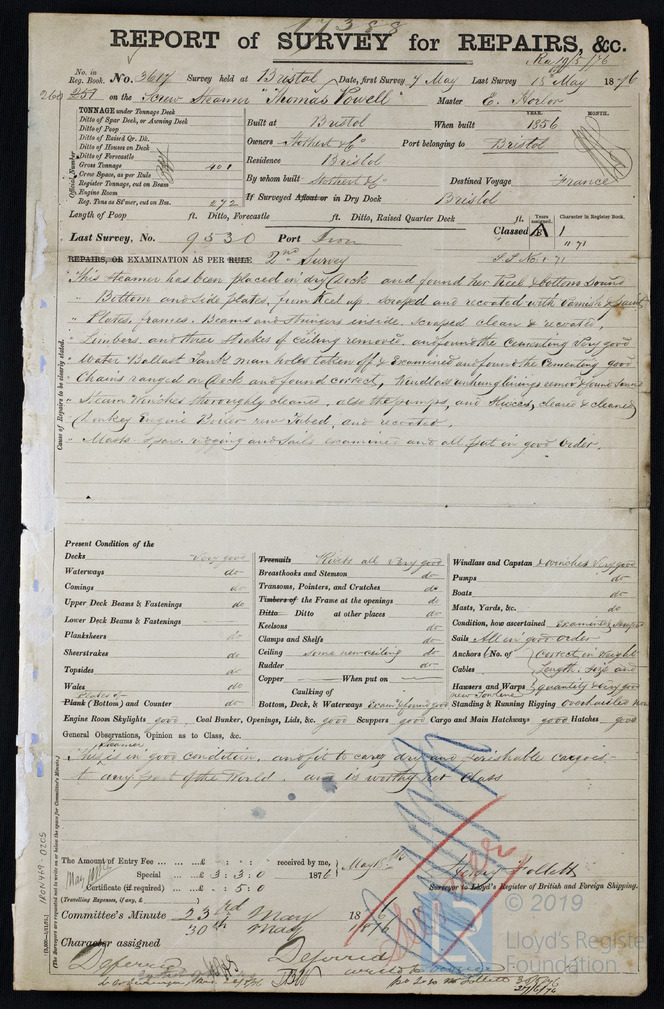 17388
REPORT of SURVEY for REPAIRS, &c.
Rec 19/5/76
No. in Reg. Book. No. 3617 Survey held at Bristol Date, first Survey 9 May Last Survey 15th May 1876
260 251 on the Screw Steamer "Thomas Powell" Master E. Horlor
TONNAGE under Tonnage Deck
Ditto of Spar Deck, or Awning Deck
Ditto of Poop
Ditto of Raised Qr. Dk.
Ditto of Houses on Deck
Ditto of Forecastle
Gross Tonnage 401
Crew Space, as per Rule
Register Tonnage, cut on Beam
Engine Room
Reg. Tons as St'mer, cut on Bm. 272
Official Number
Built at Bristol When built YEAR. 1856 MONTH.
Owners Stothert & Co Port belonging to Bristol
Residence Bristol
By whom built Stothert & Co Destined Voyage France
If Surveyed Afloat or in Dry Dock Bristol
Length of Poop ft. Ditto, Forecastle ft. Ditto, Raised Quarter Deck ft.
Years assigned. Character in Register Book.
Last Survey, No. 9530 Port Iron Classed A 1
11.71
REPAIRS, OR EXAMINATION AS PER RULE 2nd Survey
S.S. No 1-71
Cause of Repairs to be clearly stated.
This steamer has been placed in dry dock and found her Keel & bottom sound
" Bottom and side plates, from Keel up. scraped and recoated with varnish & paint
" Plates, frames. Beams and stringers inside. scraped clean & recoated,
" Limbers, and three strakes of ceiling removed, and found the cementing very good
" Water Ballast Tanks man holes taken off & examined and found the Cementing good
" Chains ranged on deck and found correct, Windlass unhung linings removed & found sound
" Steam Winches thoroughly cleaned, also the pumps, and sluices, cleared & cleaned
" Donkey Engine Boiler new Tubed, and recoated.
" Masts spars. rigging and sails examined and all put in good order.
Present Condition of the
Decks very good
Waterways do
Comings do
Upper Deck Beams & Fastenings do
Lower Deck Beams & Fastenings
Planksheers do
Sheerstrakes do
Topsides do
Wales do
Plates of
Plank (Bottom) and Counter do
Treenails Rivets all very good
Breasthooks and Stemson do
Transoms, Pointers, and Crutches do
Timbers of the Frame at the openings do
Ditto Ditto at other places do
Keelsons do
Clamps and Shelfs do
Ceiling some new ceiling do
Rudder do
Copper When put on
Caulking of
Bottom, Deck, & Waterways Exam'd & found good
Windlass and Capstan & winches very good
Pumps do
Boats do
Masts, Yards, &c. do
Condition, how ascertained Examined & scraped
Sails All in good order
Anchors (No. of Correct in Weight
Cables Length. size and
Hawsers and Warps quantity & very good
new Towline
Standing & Running Rigging overhauled
Engine Room Skylights good Coal Bunker, Openings, Lids, &c. good Scuppers good Cargo and Main Hatchways good Hatches good
General Observations, Opinion as to Class, &c.
steamer
This is in good condition, and fit to carry dry and perishable cargoes
to any part of the World. and is worthy her Class
The Amount of Entry Fee ... £ : : received by me,
Special ... £ 3 : 3 : 0 1876 May
Certificate (if required) ... £ : 5 : 0
(Travelling Expenses, if any, £ )
Follett
Surveyor to Lloyd's Register of British and Foreign Shipping.
Committee's Minute 23rd May 1876
30th May 1876
Character assigned
Deferred
Deferred
IRON469-0205
(The Surveyors are requested not to write on or below the space for Committee's Minute.)
© 2019
Lloyd's Register
Foundation
LR